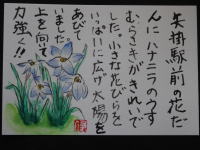 矢掛駅前の花だ
んにハナニラのうす
むらさきがきれいで
した。小さな花びらを
いっぱいに広げ太陽を
あびて
いました。
上を向いて
力強く!!